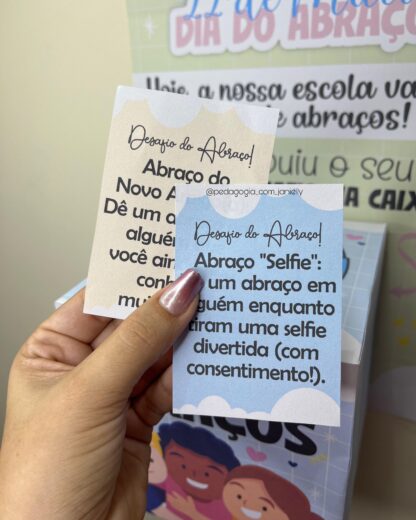 22 de Maio
DIA DO ABRAÇO
Hoje, a nossa escola va
e abraços!
buiu o seu
A CAIX
Desafio do Abraço!
Abraço do
Novo A
Dê um a
alguém
você ain
conh
mui
@pedagogia_com_janielly
Desafio do Abraço!
Abraço "Selfie":
um abraço em
guém enquanto
tiram uma selfie
divertida (com
consentimento!).
ÇOS